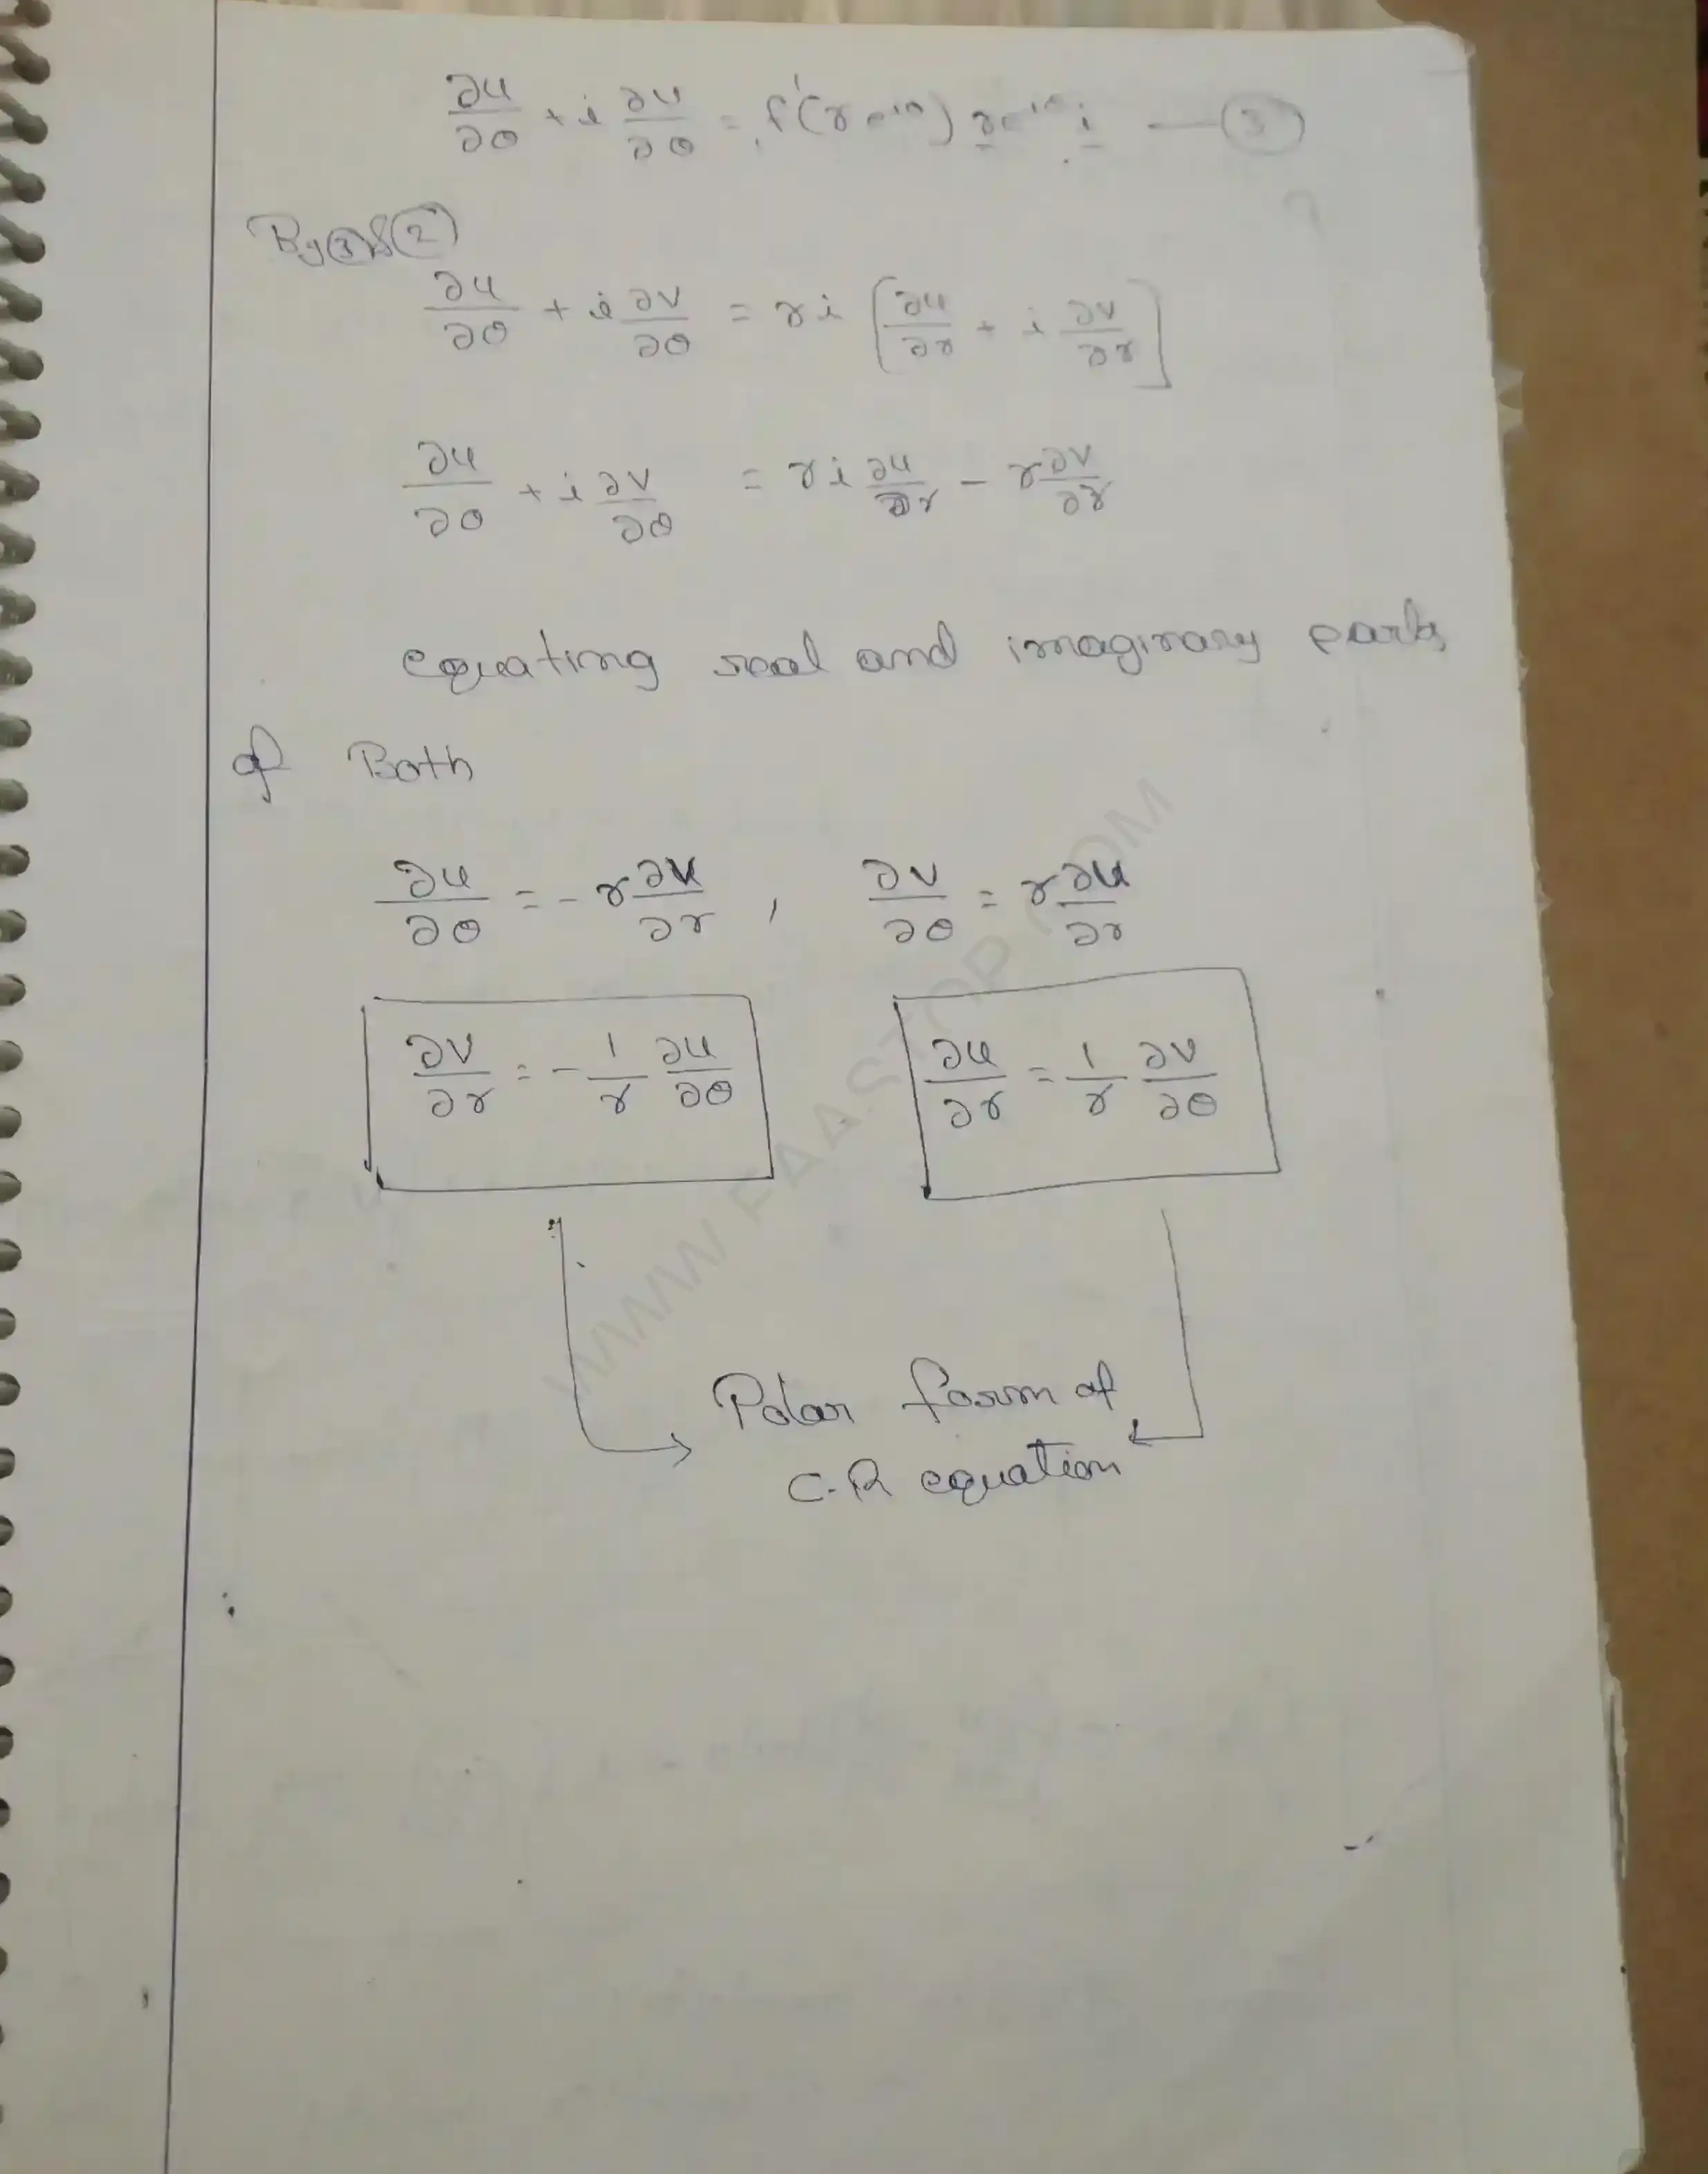 ∂u/∂θ + i ∂v/∂θ = f'(re^iθ) re^iθ i — (3)
By (3) & (2)
∂u/∂θ + i ∂v/∂θ = ri [∂u/∂r + i ∂v/∂r]
∂u/∂θ + i ∂v/∂θ = ri ∂u/∂r - r ∂v/∂r
equating real and imaginary parts
of Both
∂u/∂θ = - r ∂v/∂r , ∂v/∂θ = r ∂u/∂r
∂v/∂r = - 1/r ∂u/∂θ ∂u/∂r = 1/r ∂v/∂θ
Polar form of
C-R equation
WWW.FAASTOP.COM